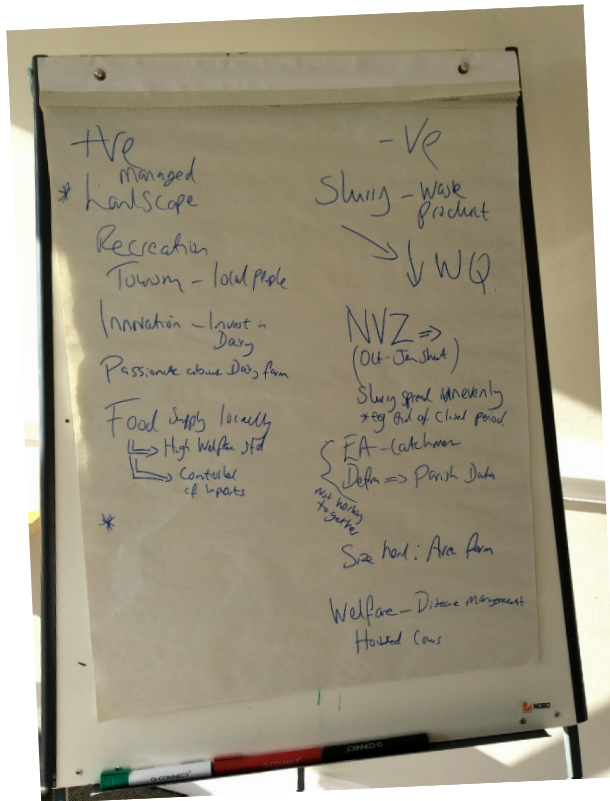 +Ve
managed
* Landscape
Recreation
Tourism - local people
Innovation - Invest in
Dairy
Passionate about Dairy farm
Food supply locally
High Welfare std
Controlled
cf Inputs
*
- Ve
Slurry - Waste
product
↓ WQ
NVZ ⇒
(Oct-Jan shut)
Slurry spread unevenly
*eg End of Closed period
EA - Catchment
Defra ⇒ Parish Data
Not working
together
Size herd : Area farm
Welfare - Disease Management
Housed Cows
NOBO
Q-CONNECT
Q-CONNECT